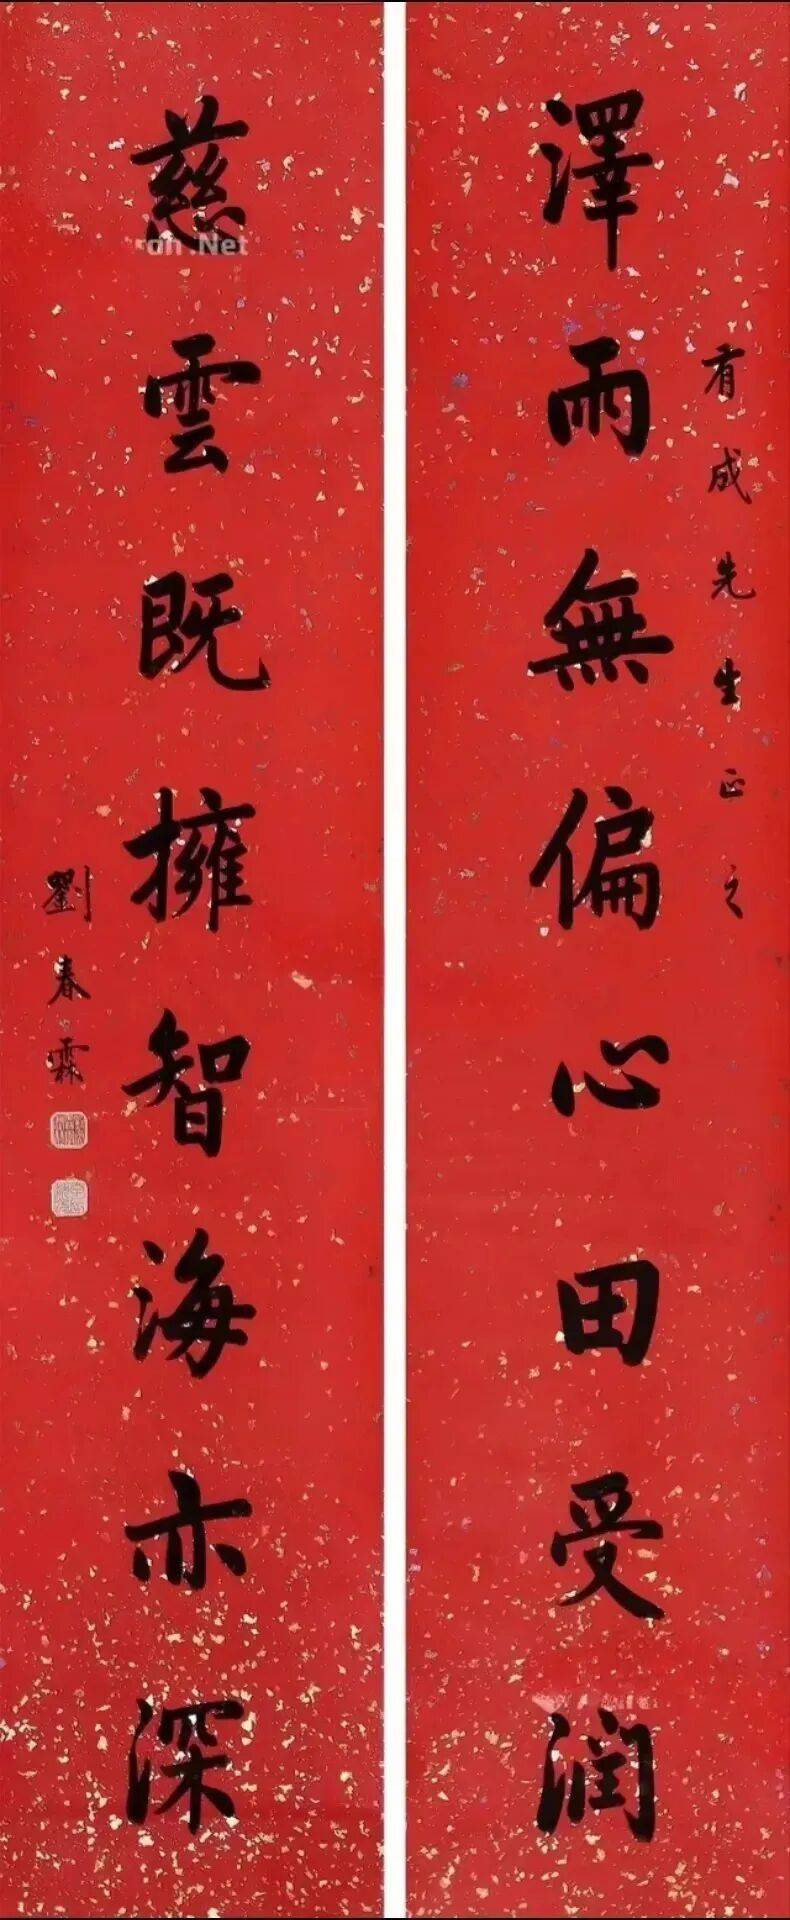 有成先生正之
澤雨無偏心田受润
慈雲既擁智海亦深
劉春霖
.Net